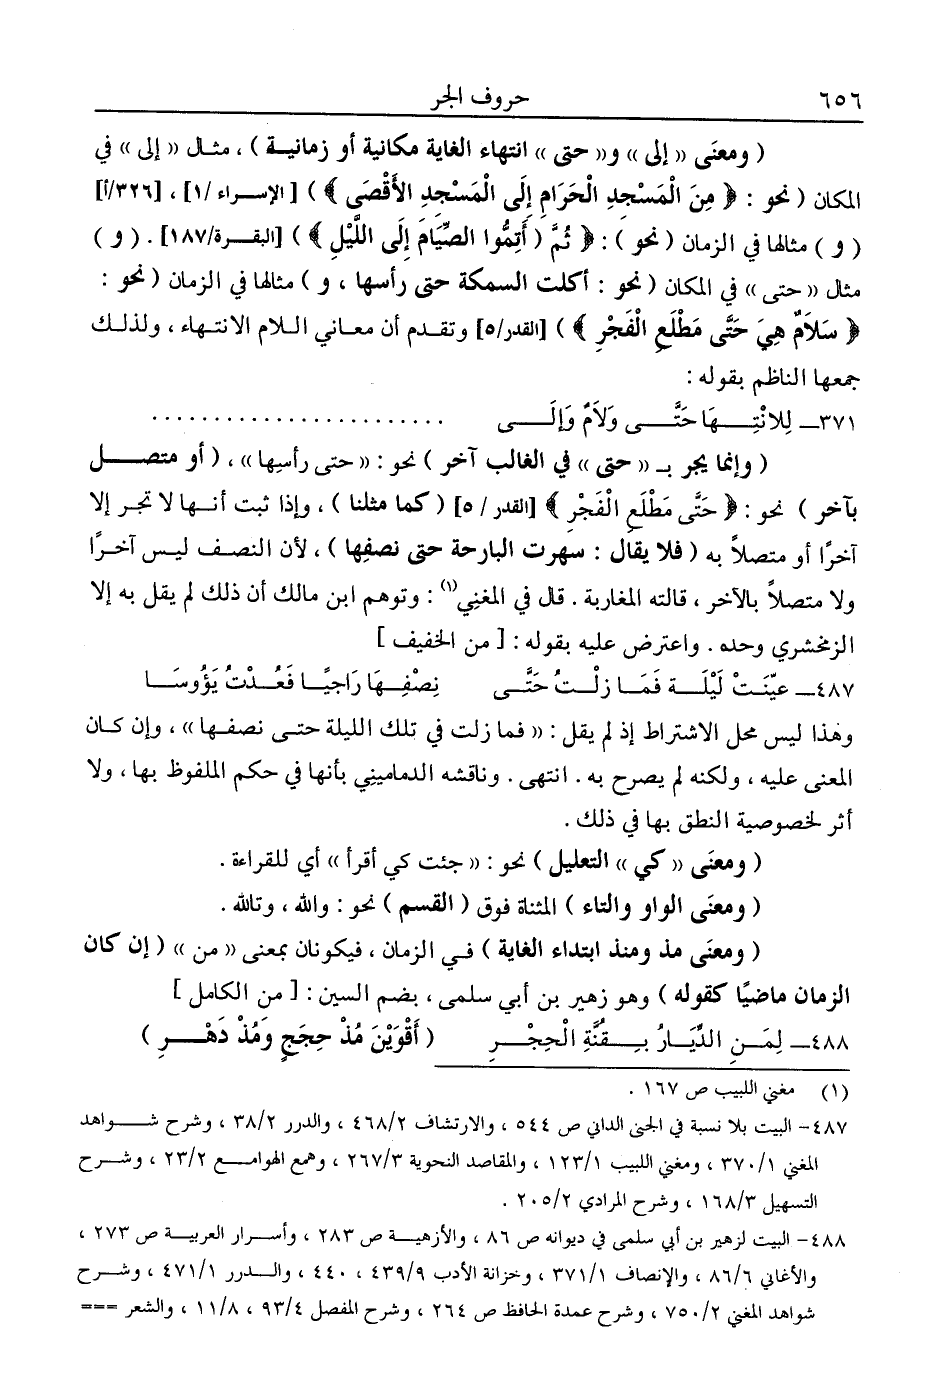 ٦٥٦ حروف الجر
( ومعنى «إلى» و«حتى» انتهاء الغاية مكانية أو زمانية ) ، مثـال «إلى» في
المكان ( نحو : ﴿ مِنَ الْمَسْجِدِ الْحَرَامِ إِلَى الْمَسْجِدِ الأَقْصَى ﴾ ) [ الإسراء /١] ، [٣٢٦/أ]
( و ) مثالها في الزمان ( نحو ) : ﴿ ثُمَّ ( أَتِمُّوا الصِّيَامَ إِلَى اللَّيْلِ ﴾ ) [البقـرة/١٨٧] . ( و )
مثال «حتى» في المكان ( نحو : أكلت السمكة حتى رأسها ، و ) مثالها في الزمان ( نحو :
﴿ سَلاَمٌ هِيَ حَتَّى مَطْلَعِ الْفَجْرِ ﴾ ) [القدر/٥] وتقـدم أن معـاني اللام الانتهاء ، ولذلك
جمعها الناظم بقوله :
٣٧١ــ لِلانْتِــهَا حَتَّــى وَلاَمٌ وَإِلَــى .........................
( وإنما يجر بـ «حتى» في الغالب آخر ) نحو : «حتى رأسها» ، ( أو متصــل
بآخر ) نحو : ﴿ حَتَّى مَطْلَعِ الْفَجْرِ ﴾ [القدر /٥] ( كما مثلنا ) ، وإذا ثبت أنـها لا تجر إلا
آخرًا أو متصلاً به ( فلا يقال : سهرت البارحة حتى نصفِها ) ، لأن النصف ليس آخـرًا
ولا متصلاً بالآخر ، قالته المغاربة . قال في المغني(١) : وتوهم ابن مالك أن ذلك لم يقل به إلا
الزمخشري وحده . واعترض عليه بقوله : [ من الخفيف ]
٤٨٧ــ عيَّنَتْ لَيْلَـةً فَمَـا زِلْـتُ حَتَّـى نِصْـفِـهَا رَاجِيًـا فَعُـدْتُ يَؤُوسَـا
وهذا ليس محل الاشتراط إذ لم يقل : «فما زلت في تلك الليلة حتـى نصفـها» ، وإن كـان
المعنى عليه ، ولكنه لم يصرح به . انتهى . وناقشه الدماميني بأنها في حكم الملفوظ بها ، ولا
أثر لخصوصية النطق بها في ذلك .
( ومعنى «كي» التعليل ) نحو : «جئت كي أقرأ» أي للقراءة .
( ومعنى الواو والتاء ) المثناة فوق ( القسم ) نحو : والله ، وتالله .
( ومعنى مذ ومنذ ابتداء الغاية ) فـي الزمان ، فيكونان بمعنى «من» ( إن كان
الزمان ماضيًا كقوله ) وهو زهير بن أبي سلمى ، بضم السين : [ من الكامل ]
٤٨٨ــ لِمَـنِ الدِّيَـارُ بِـقُنَّةِ الْحِجْــرِ ( أَقْوَيْنَ مُذْ حِجَجٍ وَمُذْ دَهْــرِ )
(١) مغني اللبيب ص ١٦٧ .
٤٨٧- البيت بلا نسبة في الجنى الداني ص ٥٤٤ ، والارتشاف ٤٦٨/٢ ، والدرر ٣٨/٢ ، وشرح شــواهد
المغني ٣٧٠/١ ، ومغني اللبيب ١٢٣/١ ، والمقاصد النحوية ٢٦٧/٣ ، وهمع الهوامـع ٢٣/٢ ، وشـرح
التسهيل ١٦٨/٣ ، وشرح المرادي ٢٠٥/٢ .
٤٨٨- البيت لزهير بن أبي سلمى في ديوانه ص ٨٦ ، والأزهيـة ص ٢٨٣ ، وأسـرار العربيـة ص ٢٧٣ ،
والأغاني ٨٦/٦ ، والإنصاف ٣٧١/١ ، وخزانة الأدب ٤٣٩/٩ ، ٤٤٠ ، والـدرر ٤٧١/١ ، وشـرح
شواهد المغني ٧٥٠/٢ ، وشرح عمدة الحافظ ص ٢٦٤ ، وشرح المفصل ٩٣/٤ ، ١١/٨ ، والشعر ===